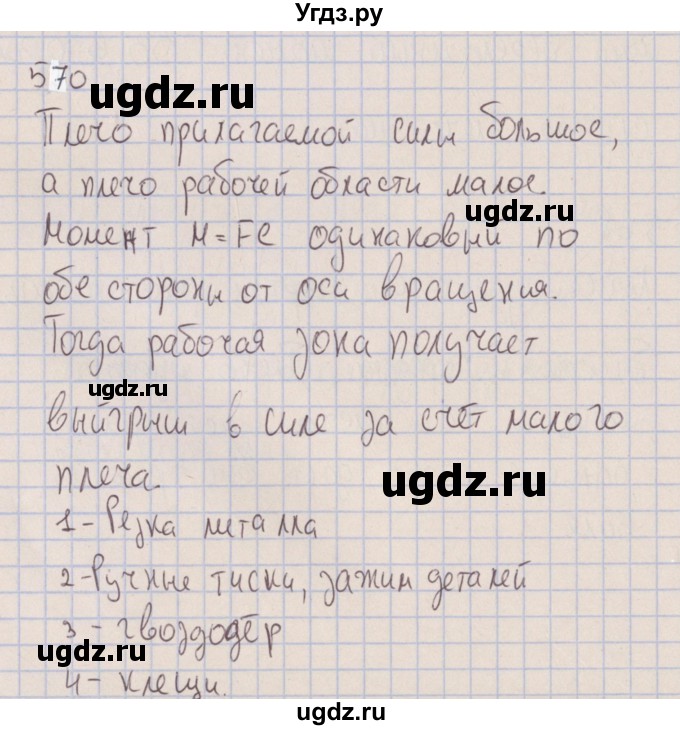 Угдз.ру
570
ugdz.ru
Плечо прилагаемой силы большое,
а плечо рабочей области малое.
ugdz.ru
Момент M=Fl одинаковый по
обе стороны от оси вращения.
Тогда рабочая зона получает
ugdz.ru
выйгрыш в силе за счёт малого
плеча.
ugdz.ru
1-Резка металла
2-Ручные тиски, зажим деталей
3-гвоздодёр
ugdz.ru
4-клещи.
ugdz.ru